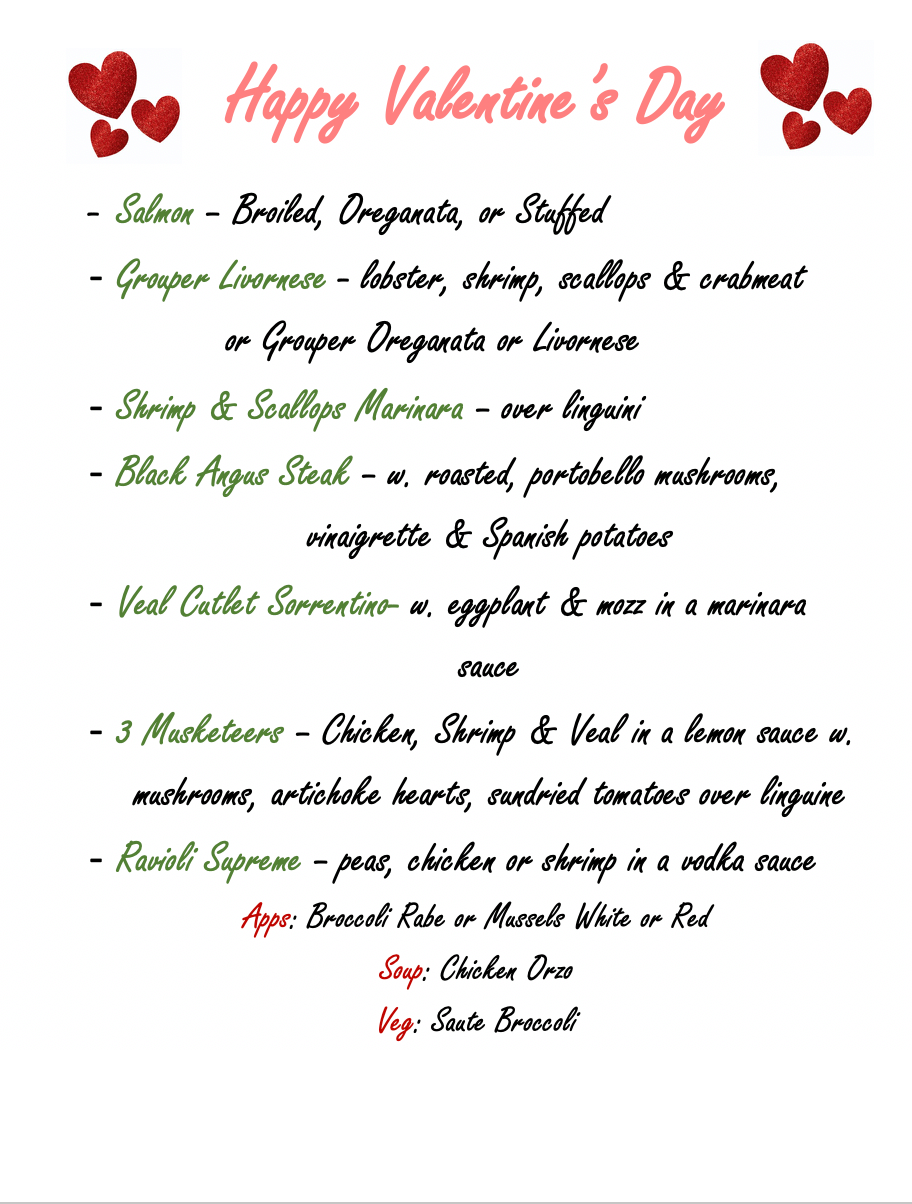 Happy Valentine's Day
- Salmon – Broiled, Oreganata, or Stuffed
- Grouper Livornese – lobster, shrimp, scallops & crabmeat
or Grouper Oreganata or Livornese
- Shrimp & Scallops Marinara – over linguini
- Black Angus Steak – w. roasted, portobello mushrooms,
vinaigrette & Spanish potatoes
- Veal Cutlet Sorrentino– w. eggplant & mozz in a marinara
sauce
- 3 Musketeers – Chicken, Shrimp & Veal in a lemon sauce w.
mushrooms, artichoke hearts, sundried tomatoes over linguine
- Ravioli Supreme – peas, chicken or shrimp in a vodka sauce
Apps: Broccoli Rabe or Mussels White or Red
Soup: Chicken Orzo
Veg: Saute Broccoli